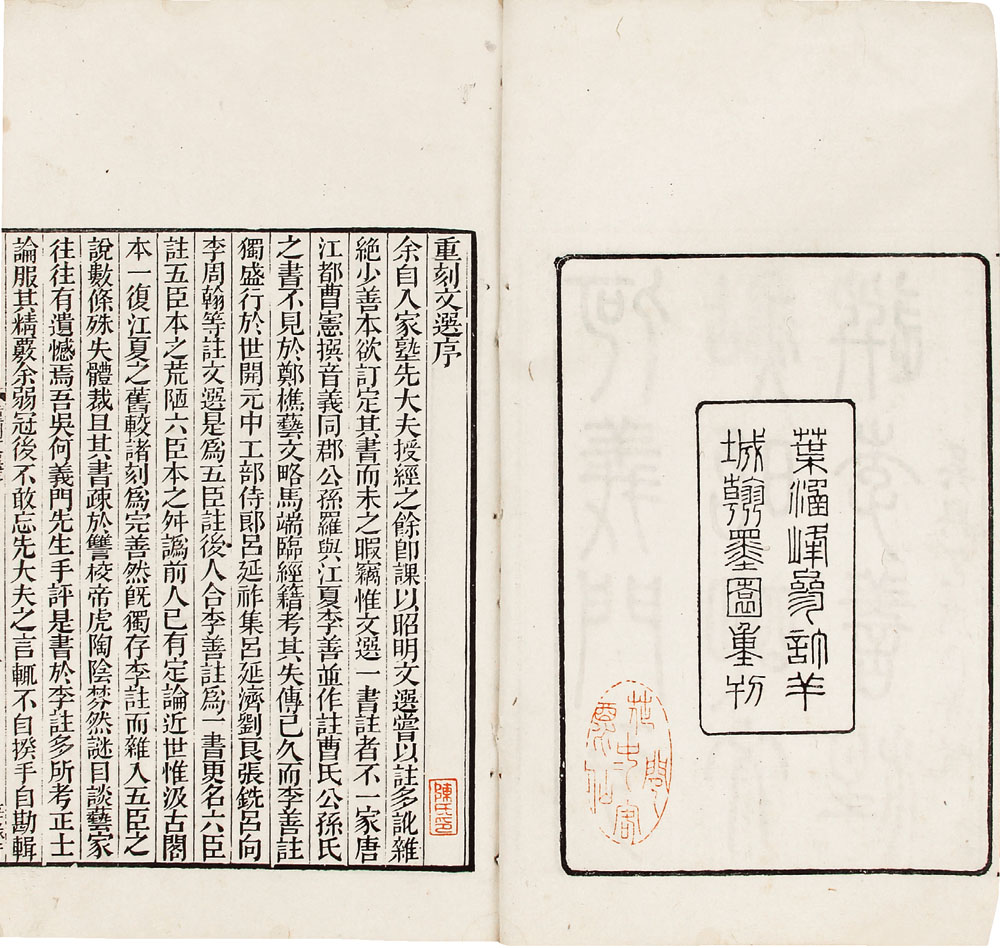 葉涵峰參訂羊
城翰墨園重刊
重刻文選序
余自入家塾先大夫授經之餘卽課以昭明文選嘗以註多訛雜
絶少善本欲訂定其書而未之暇竊惟文選一書註者不一家唐
江都曹憲撰音義同郡公孫羅與江夏李善並作註曹氏公孫氏
之書不見於鄭樵藝文略馬端臨經籍考其失傳已久而李善註
獨盛行於世開元中工部侍郞呂延祚集呂延濟劉良張銑呂向
李周翰等註文選是爲五臣註後人合李善註爲一書更名六臣
註五臣本之荒陋六臣本之舛譌前人已有定論近世惟汲古閣
本一復江夏之舊較諸刻爲完善然旣獨存李註而雜入五臣之
說數條殊失體裁且其書疎於讐校帝虎陶陰棼然謎目談藝家
往往有遺憾焉吾吳何義門先生手評是書於李註多所考正士
論服其精覈余弱冠後不敢忘先大夫之言輒不自揆手自勘輯
陳氏